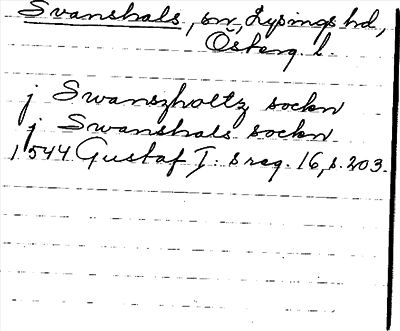 Svanshals, sn, Lysings hd,
Österg. l.
j Swanszholtz sockn
j Swanshals sockn
1544 Gustaf I:s reg. 16, s. 203.